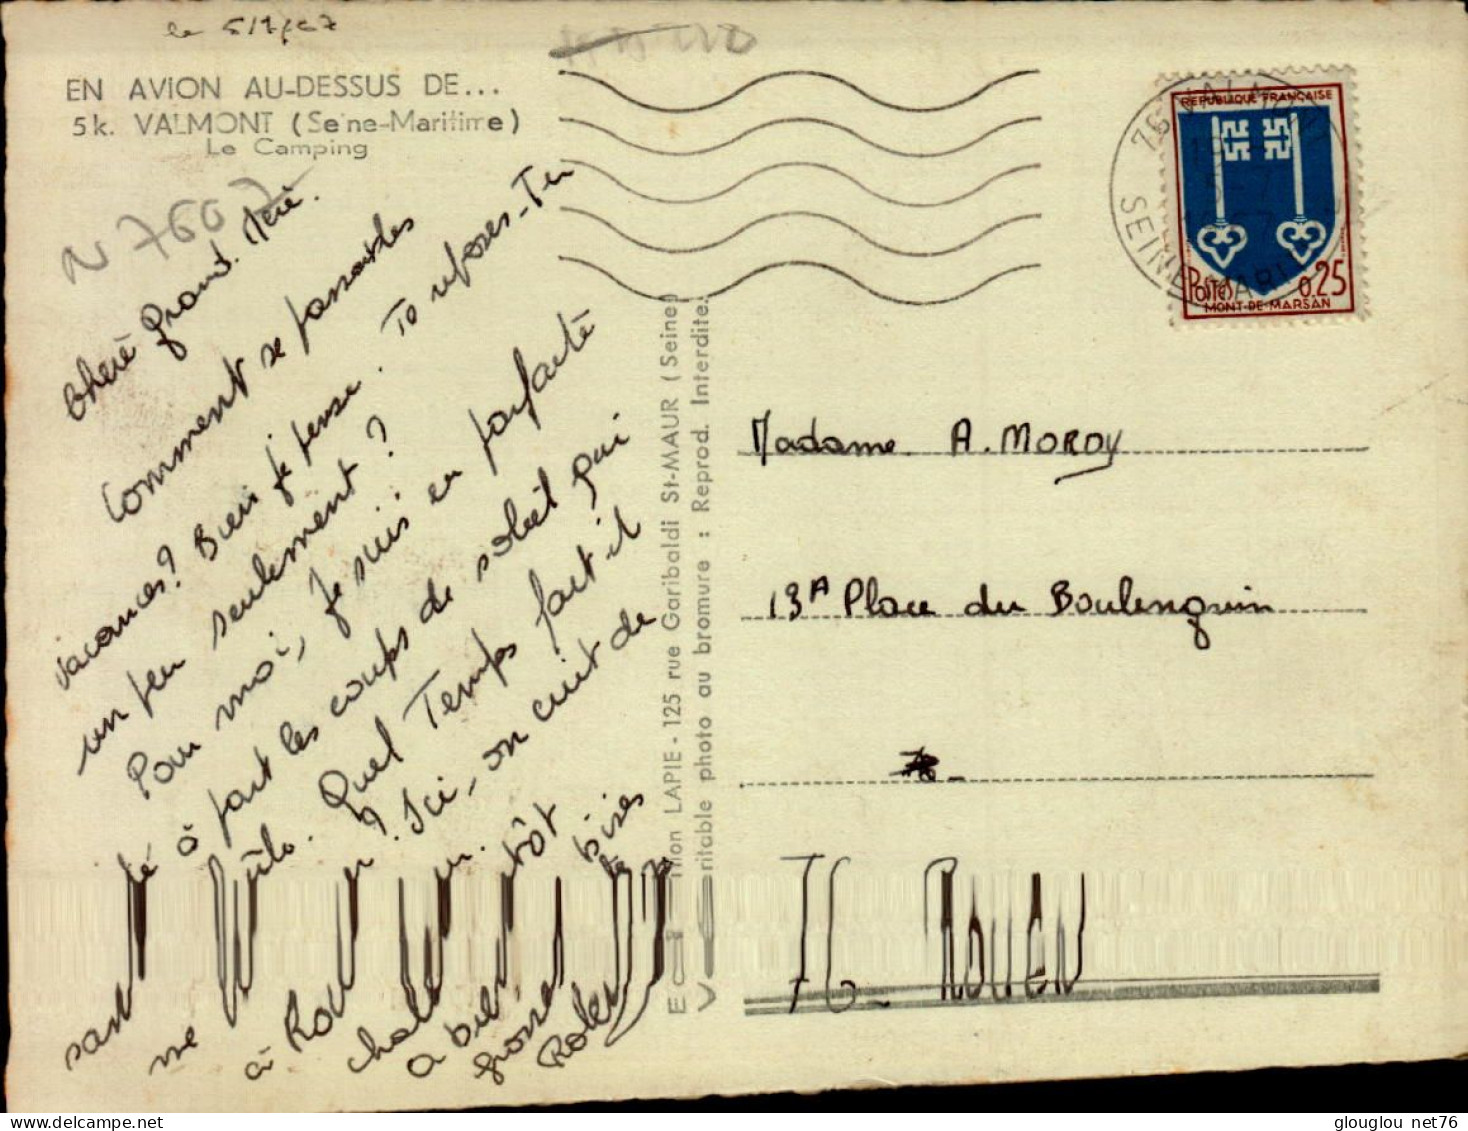 le 5/7/67
EN AVION AU-DESSUS DE...
5k. VALMONT (Seine-Maritime)
Le Camping
N 7607
Chère Grand. Mère.
Comment se passent les
vacances? Bien je pense. Te reposes-Tu
un peu seulement ?
Pour moi, je suis en parfaite
santé à part les coups de soleil qui
me brûle. Quel Temps fait-il
à Rouen ?. Ici, on cuit de
chaleur.
a bientôt
grosses bises
Edition LAPIE - 125 rue Garibaldi St-MAUR (Seine)
Véritable photo au bromure : Reprod. Interdite.
REPUBLIQUE FRANÇAISE
POSTES 0.25
MONT-DE-MARSAN
76
SEINE MARI
Madame A. MOROY
13A Place du Boulenguin
76 - ROUEN
glouglou net76